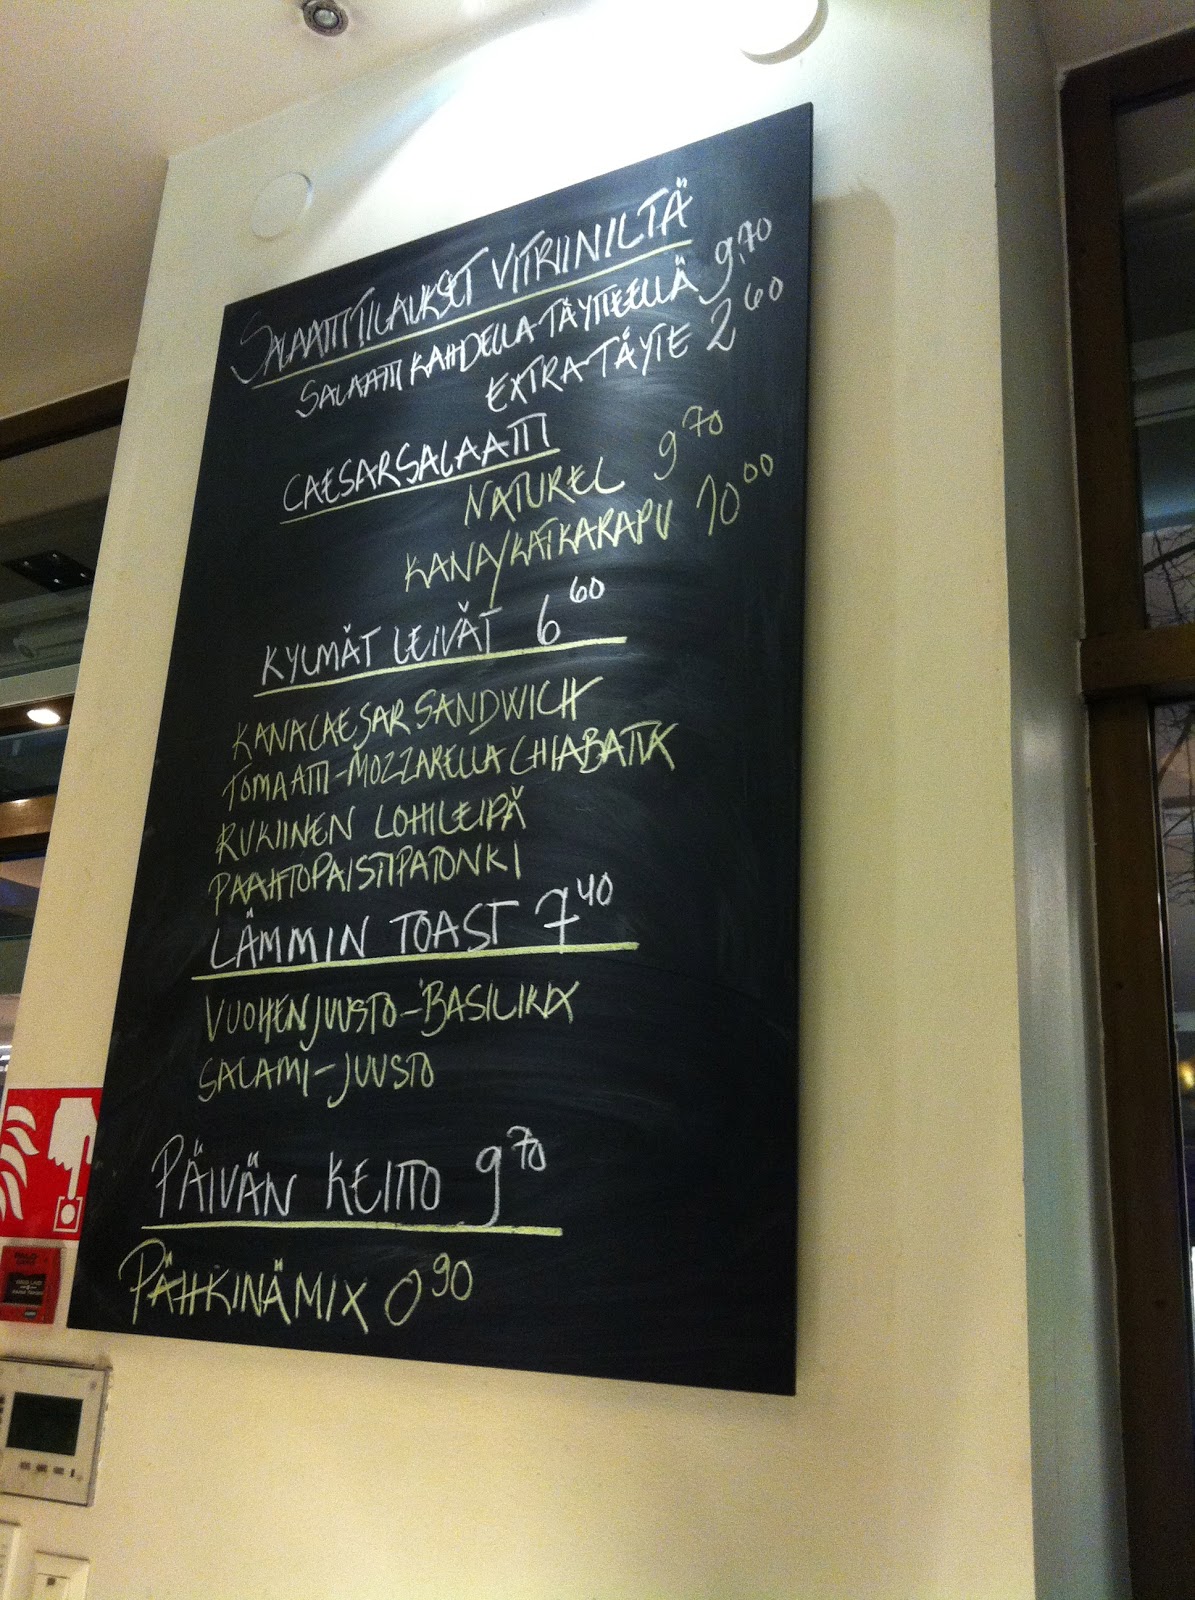 SALAATTITILAUKSET VITRIINILTÄ
SALAATTI KAHDELLA TÄYTTEELLÄ 9,70
EXTRA-TÄYTE 2 60
CAESARSALAATTI
NATUREL 9 70
KANA/KATKARAPU 10 00
KYLMÄT LEIVÄT 6 60
KANACAESAR SANDWICH
TOMAATTI-MOZZARELLA CHIABATTA
RUKIINEN LOHILEIPÄ
PAAHTOPAISTIPATONKI
LÄMMIN TOAST 7 40
VUOHENJUUSTO-BASILIKA
SALAMI-JUUSTO
PÄIVÄN KEITTO 9 70
PÄHKINÄMIX 0 90